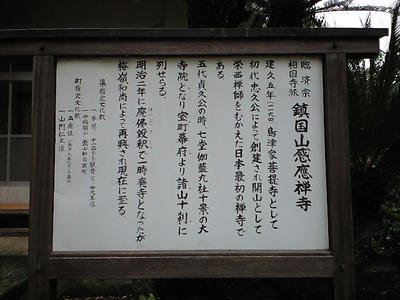 臨済宗
相国寺派
鎮国山感應禅寺
建久五年(一一九四)島津家菩提寺として
初代忠久公によって創建され開山として
栄西禅師をむかえた日本最初の禅寺で
ある
五代貞久公の時、七堂伽藍九社十景の大
寺院となり室町幕府より諸山十刹に
列せらる。
明治二年に廃佛毀釈で一時廃寺となったが
梅嶺和尚によって再興され現在に至る。
県指定文化財
一、本尊 十一面千手観音 四天王像
町指定文化財
一、五廟社
一、山門仁王像